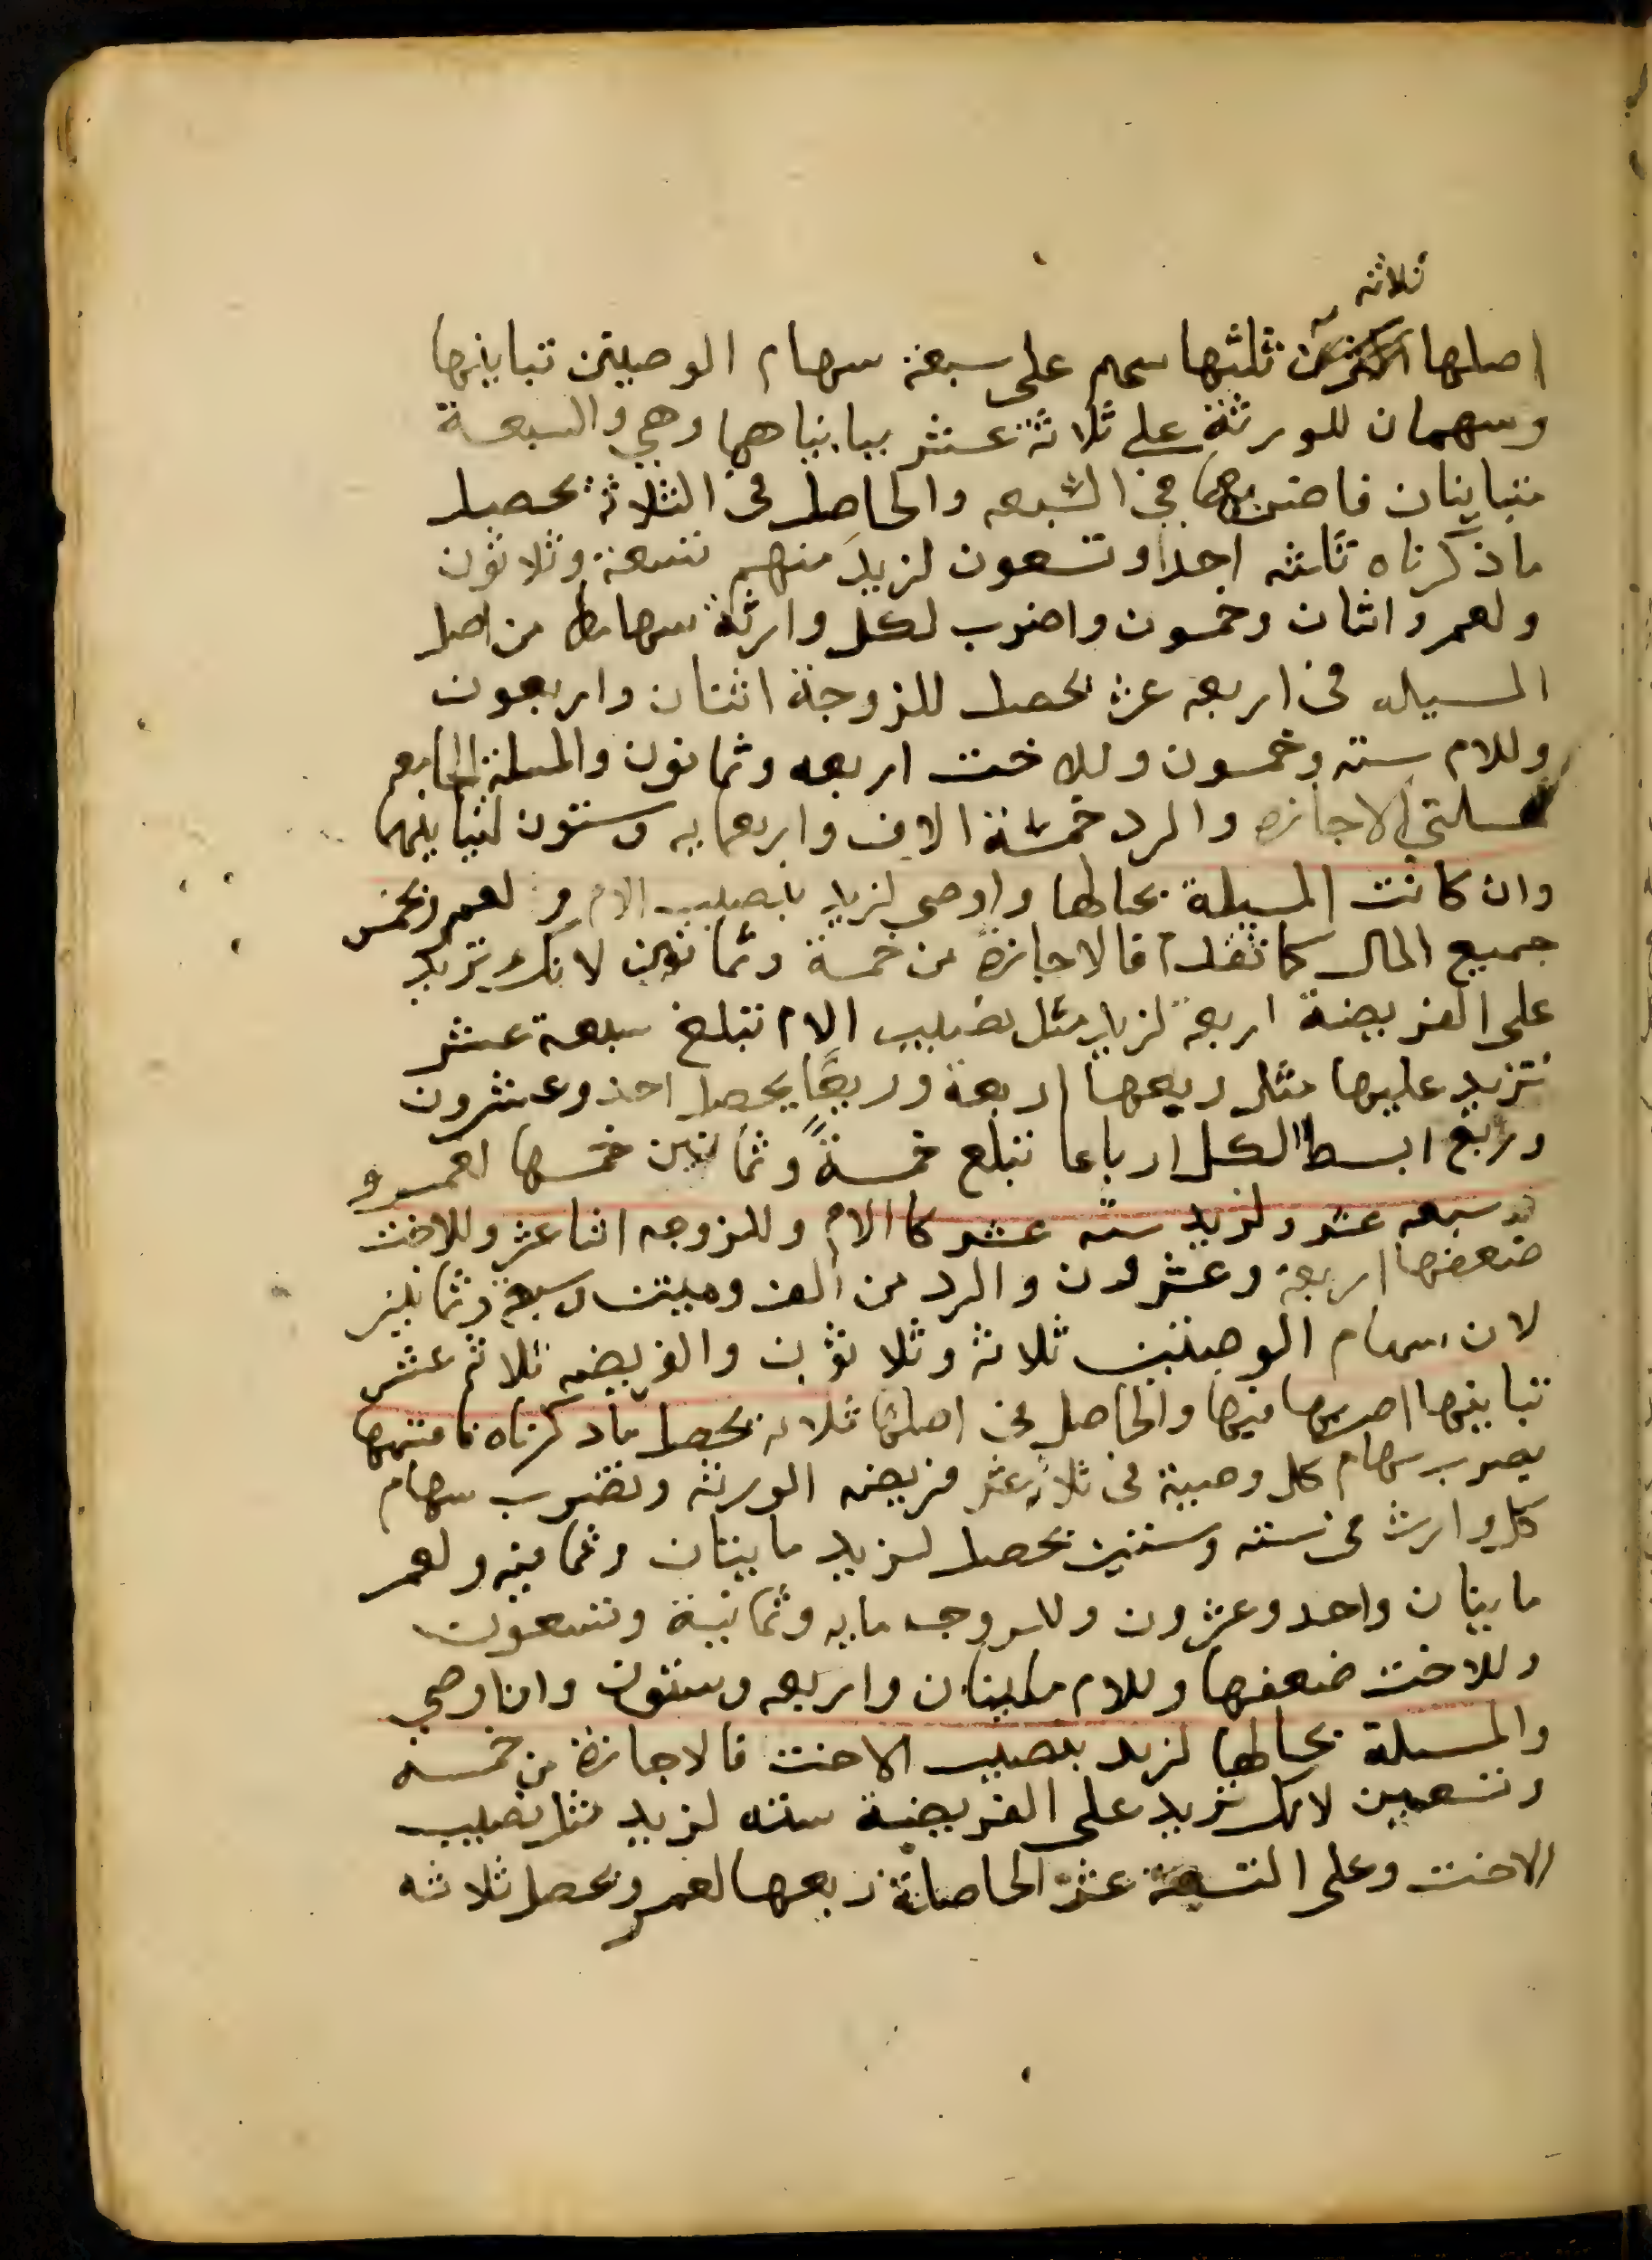 ثلاثه
اصلها ثلثها سهم على سبعة سهام الوصيتين تباينها
وسهمان للورثة على ثلاثة عشر يبايناهما وهي والسبعة
متباينان فاضربها في السبعه والحاصل في الثلاثة يحصل
ماذكرناه ثلثه احد وتسعون لزيد منهم تسعة وثلاثون
ولعمرو اثنان وخمسون واضرب لكل وارثة سهامها من اصل
المسيله في اربعه عشر يحصل للزوجة اثنتان واربعون
وللام سته وخمسون وللاخت اربعه وثمانون والمسلة الجامعه
لمسلتي الاجازه والرد خمسة الاف واربعمايه وستون لتباينهما
وان كانت المسيلة بحالها واوصى لزيد بنصيب الام ولعمرو بخمس
جميع المال كما تقدم فالاجازة من خمسة وثمانين لانك تزيد
على الفريضة اربعة لزيد مثل نصيب الام تبلغ سبعة عشر
تزيد عليها مثل ربعها اربعة وربعًا يحصل احد وعشرون
وربع ابسط الكل ارباعا تبلغ خمسةً وثمانين خمسها لعمرو
سبعه عشر ولزيد سته عشر كالام وللزوجه اثنا عشر وللاخت
ضعفها اربعة وعشرون والرد من الف وميتين وسبعة وثمانين
لان سهام الوصيتين ثلاثة وثلاثون والفريضه ثلاثة عشر
تباينها اضربها فيها والحاصل في اصلها ثلاثه يحصل ماذكرناه فاقسمها
بضرب سهام كل وصية في ثلاثة عشر فريضه الورثه وتضرب سهام
كل وارث في سته وستين يحصل لزيد مايتان وثمانيه ولعمرو
مايتان واحد وعشرون وللزوجه مايه وثمانية وتسعون
وللاخت ضعفها وللام مايتان واربعه وستون وان اوصي
والمسلة بحالها لزيد بنصيب الاخت فالاجازة من خمسه
وتسعين لانك تزيد على الفريضة سته لزيد مثل نصيب
الاخت وعلى التسعة عشر الحاصلة ربعها لعمرو يحصل ثلاثه